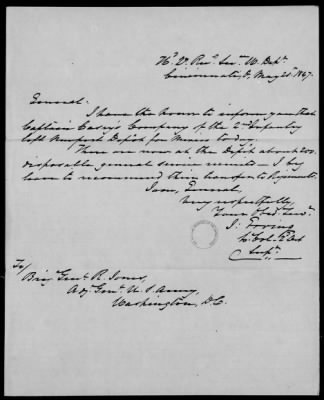 Hd. Qr. Recg. Serv. W. Dept.
Cincinnati, O., May 25th 1847.
General.
I have the honor to inform you that
Captain Casey's Company of the 2nd Infantry
left Newport Depot for Mexico to day.
There are now at the Depot about 200
disposable general service recruits — I beg
leave to recommend their transfer to Regiments.
I am, General,
Very respectfully,
Your Obed. Servt.
J. Erving
Lt. Col. 2d Art
Supt.
To/
Brig. Genl. R. Jones,
Adj. Genl. U. S. Army,
Washington, D. C.